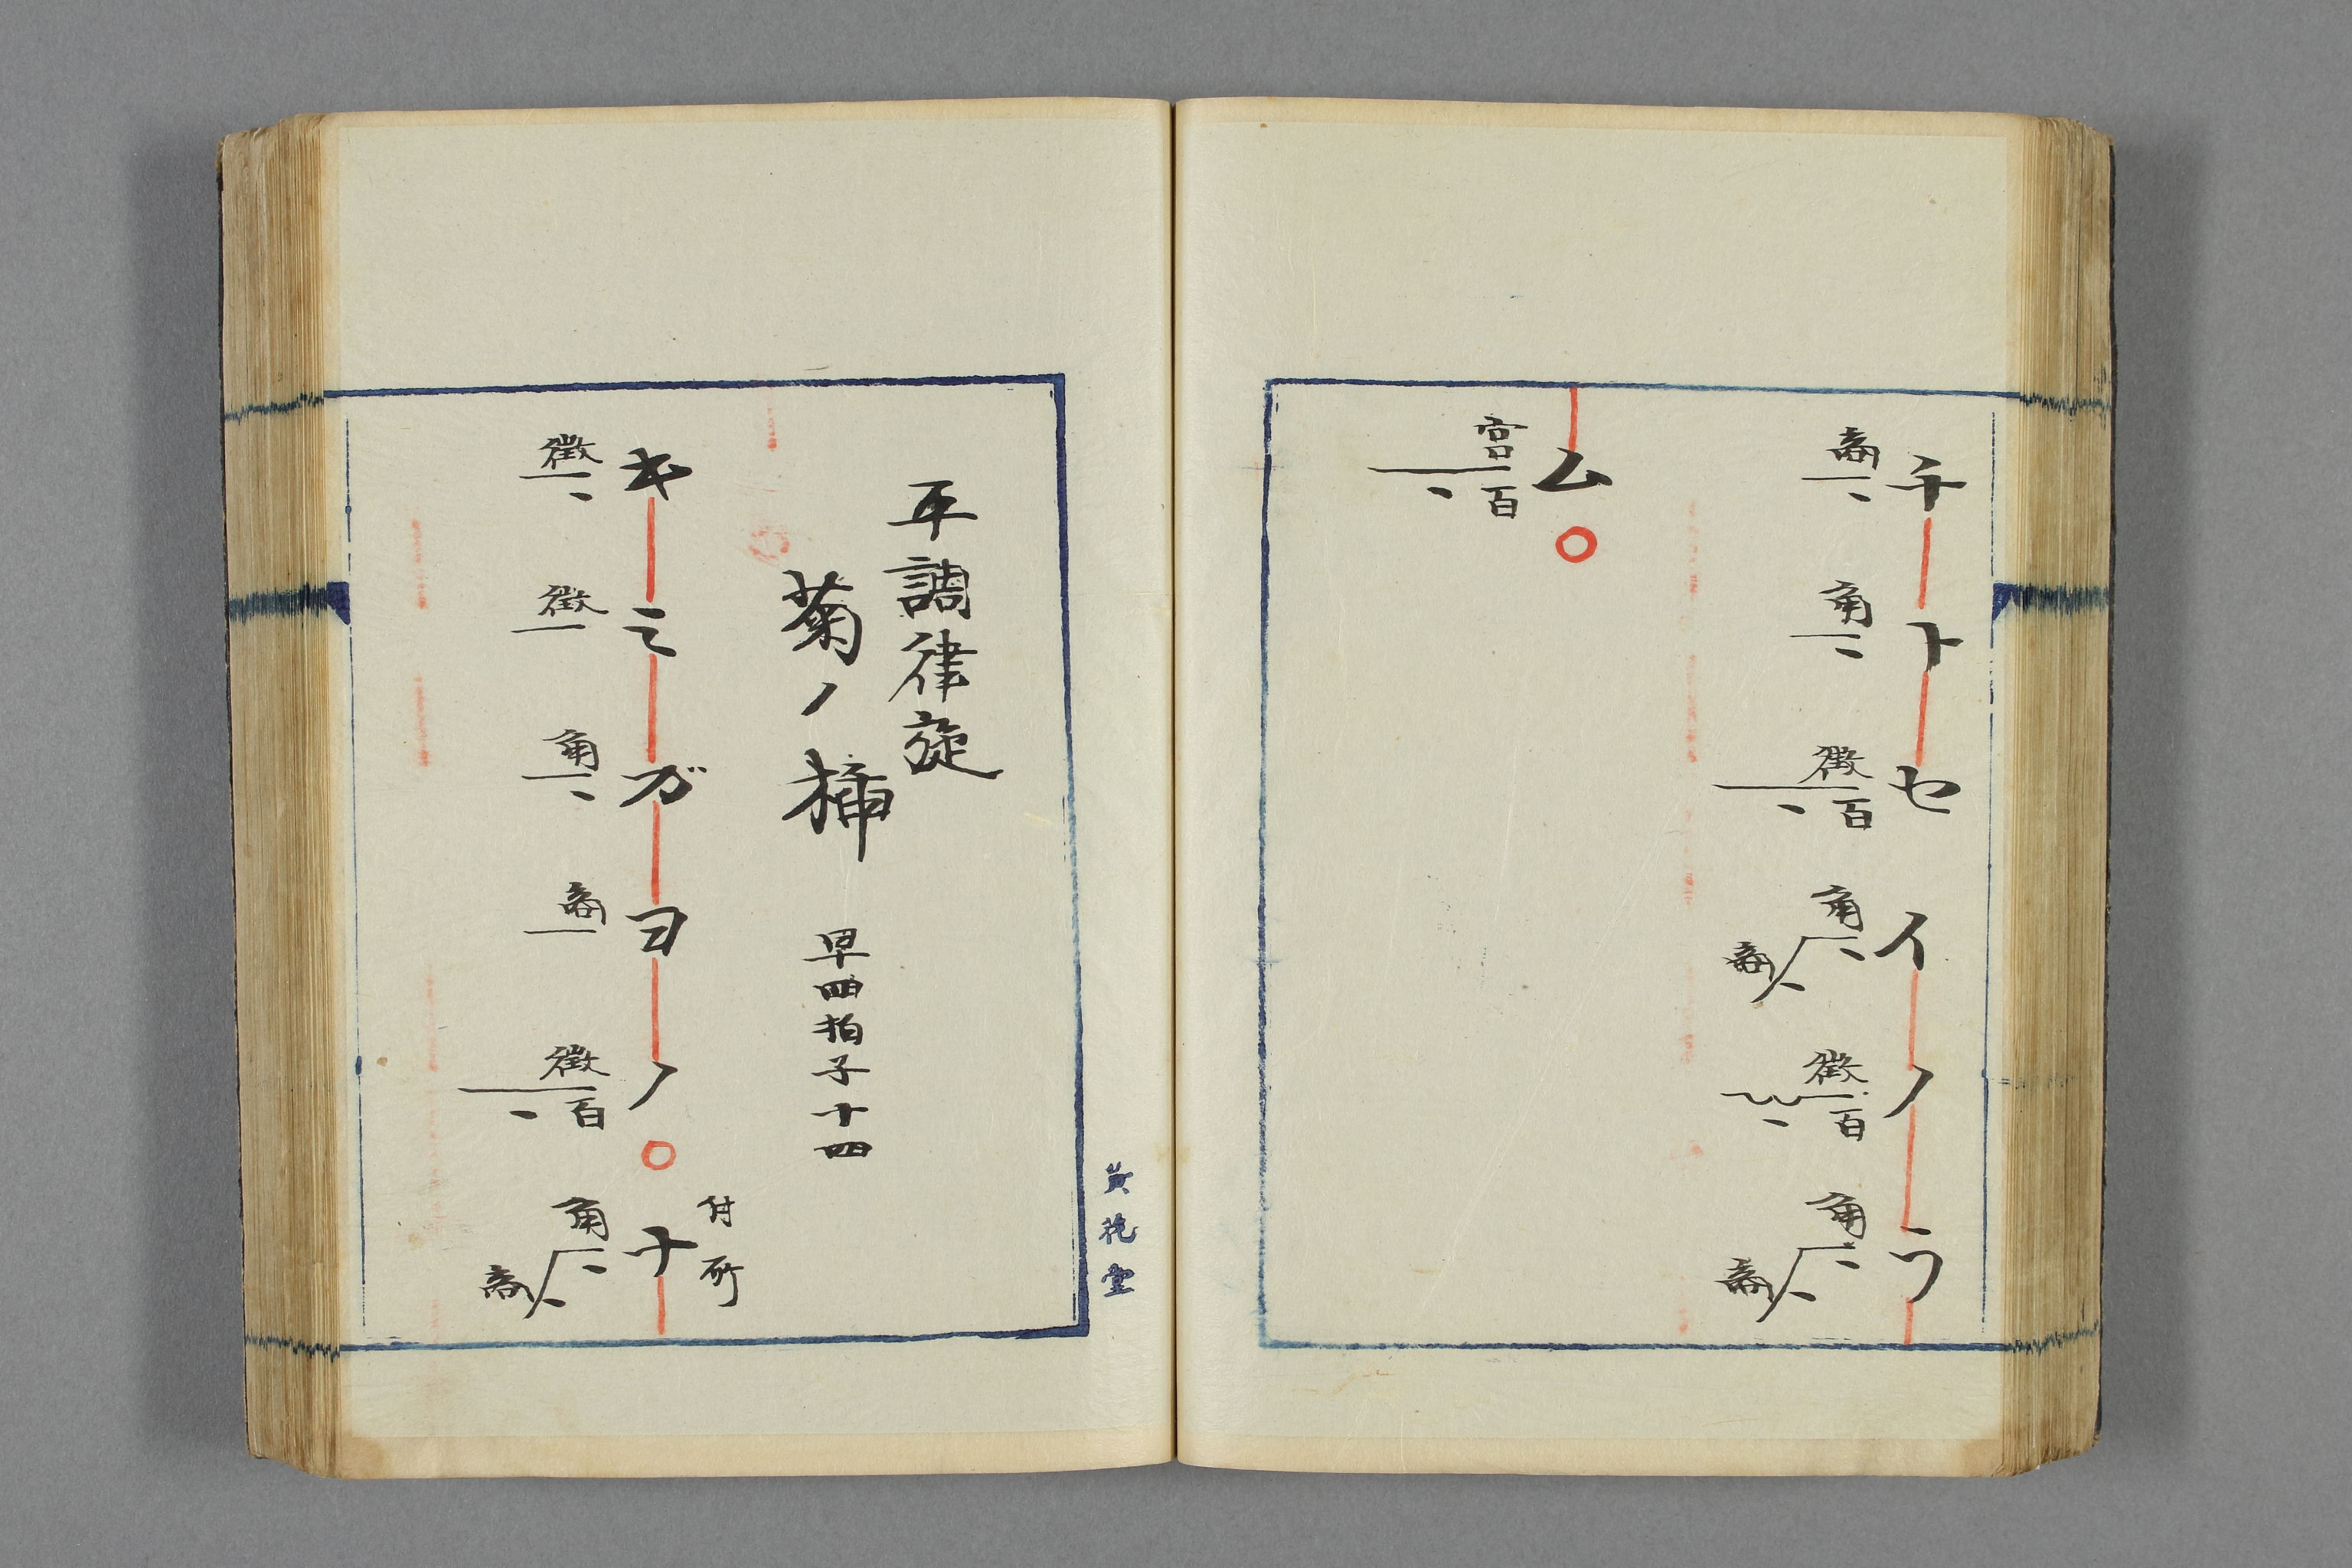 チトセイノラ
商 角 徴百 角商 徴百 角商
ム
宮百
平調律旋
菊ノ挿 早四拍子十四
付所
キミガヨノナ
徴 徴 角 商 徴百 角商